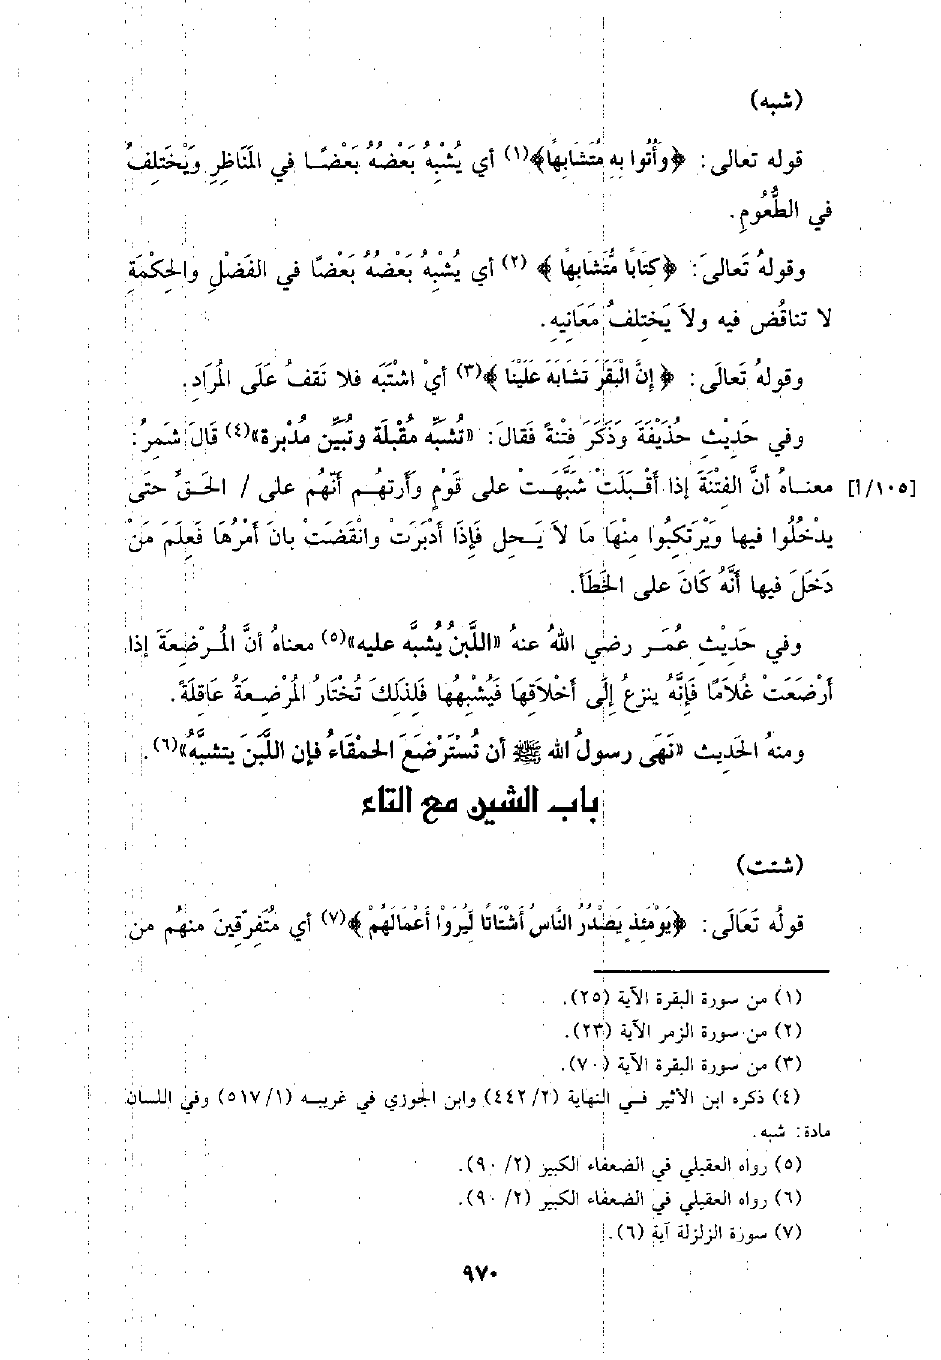 (شبه)
قوله تعالى: ﴿وَأُتُوا بِهِ مُتَشَابِهًا﴾(١) أي يُشْبِهُ بَعْضُهُ بَعْضًا في المَنَاظِرِ وَيَخْتَلِفُ
في الطُّعُومِ.
وقولهُ تَعالىَ: ﴿كِتَابًا مُّتَشَابِهًا﴾ (٢) أي يُشْبِهُ بَعْضُهُ بَعْضًا في الفَضْلِ والحِكْمَةِ
لا تناقُض فيه ولاَ يَختلفُ مَعَانِيهِ.
وقولهُ تَعَالَى: ﴿إِنَّ الْبَقَرَ تَشَابَهَ عَلَيْنَا﴾(٣) أيْ اشْتَبَه فلا نَقفُ عَلَى المُرَادِ.
وفي حَدِيثِ حُذَيْفَةَ وَذَكَرَ فِتْنَةً فَقالَ: «تُشَبِّه مُقْبلَة وتُبَيِّن مُدْبرة»(٤) قَالَ شَمِرُ:
[١٠٥/أ] معنـاهُ أنَّ الفِتْنَةَ إذا أَقْـبَلَتْ شَبَّهَـتْ على قَوْمٍ وَأَرتهُـم أَنّهُم على / الحَـقِّ حتى
يدْخُلُوا فيها وَيَرْتَكِبُوا مِنْهَا مَا لاَ يَـحل فَإِذَا أَدْبَرَتْ وانْقَضَتْ بانَ أَمْرُهَا فَعلِمَ مَنْ
دَخَلَ فيها أَنَّهُ كَانَ على الخَطَأ.
وفي حَدِيْثِ عُمَـر رضي اللهُ عنهُ «اللَّبَنُ يُشبَّه عليه»(٥) معناهُ أنَّ المُـرْضِعَةَ إذا
أَرْضَعَتْ غُلاَمًا فَإِنَّهُ ينزعُ إلَى أخْلاَقِهَا فَيُشْبِهُها فَلِذَلِكَ تُخْتَارُ المُرْضِعَةُ عَاقِلَةً.
ومنهُ الحَدِيث «نَهَى رسولُ الله ﷺ أن تُسْتَرْضَعَ الحَمْقَاءُ فإن اللَّبَنَ يتشبَّهُ»(٦).
باب الشين مع التاء
(شتت)
قولُه تَعَالَى: ﴿يَوْمَئِذٍ يَصْدُرُ النَّاسُ أَشْتَاتًا لِيُرَوْا أَعْمَالَهُمْ﴾(٧) أي مُتَفرّقِينَ منهُم من
(١) من سورة البقرة الآية (٢٥).
(٢) من سورة الزمر الآية (٢٣).
(٣) من سورة البقرة الآية (٧٠).
(٤) ذكره ابن الأثير فـي النهاية (٤٤٢/٢) وابن الجوزي في غريبـه (٥١٧/١) وفي اللسان
مادة: شبه.
(٥) رواه العقيلي في الضعفاء الكبير (٩٠/٢).
(٦) رواه العقيلي في الضعفاء الكبير (٩٠/٢).
(٧) سورة الزلزلة آية (٦).
٩٧٠